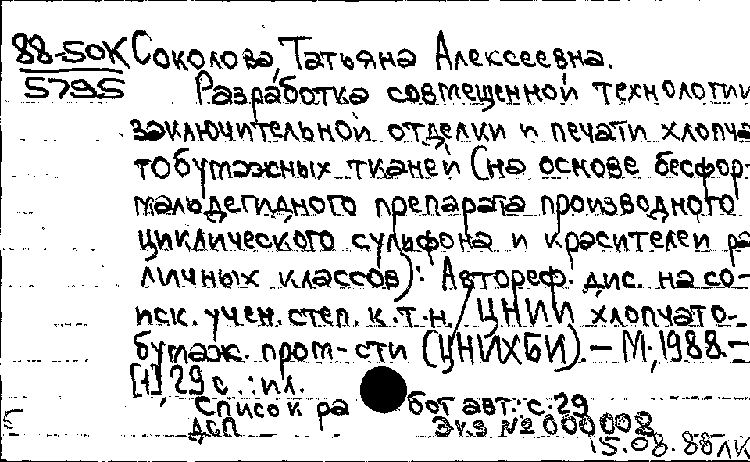 88-50К Соколова, Татьяна Алексеевна.
5795 Разработка совмещенной технологии
заключительной отделки и печати хлопча
тобумажных тканей (на основе бесфор-
мальдегидного препарата производного
циклического сульфона и красителей ра
личных классов): Автореф. дис. на со-
иск. учен. степ. к.т.н. / ЦНИИ хлопчато-
бумаж. пром-сти (ЦНИХБИ). – М., 1988. –
[1], 29 с. : ил.
Список работ авт.: с. 29
ДСП Экз № 000008
15.08.88 ЛК